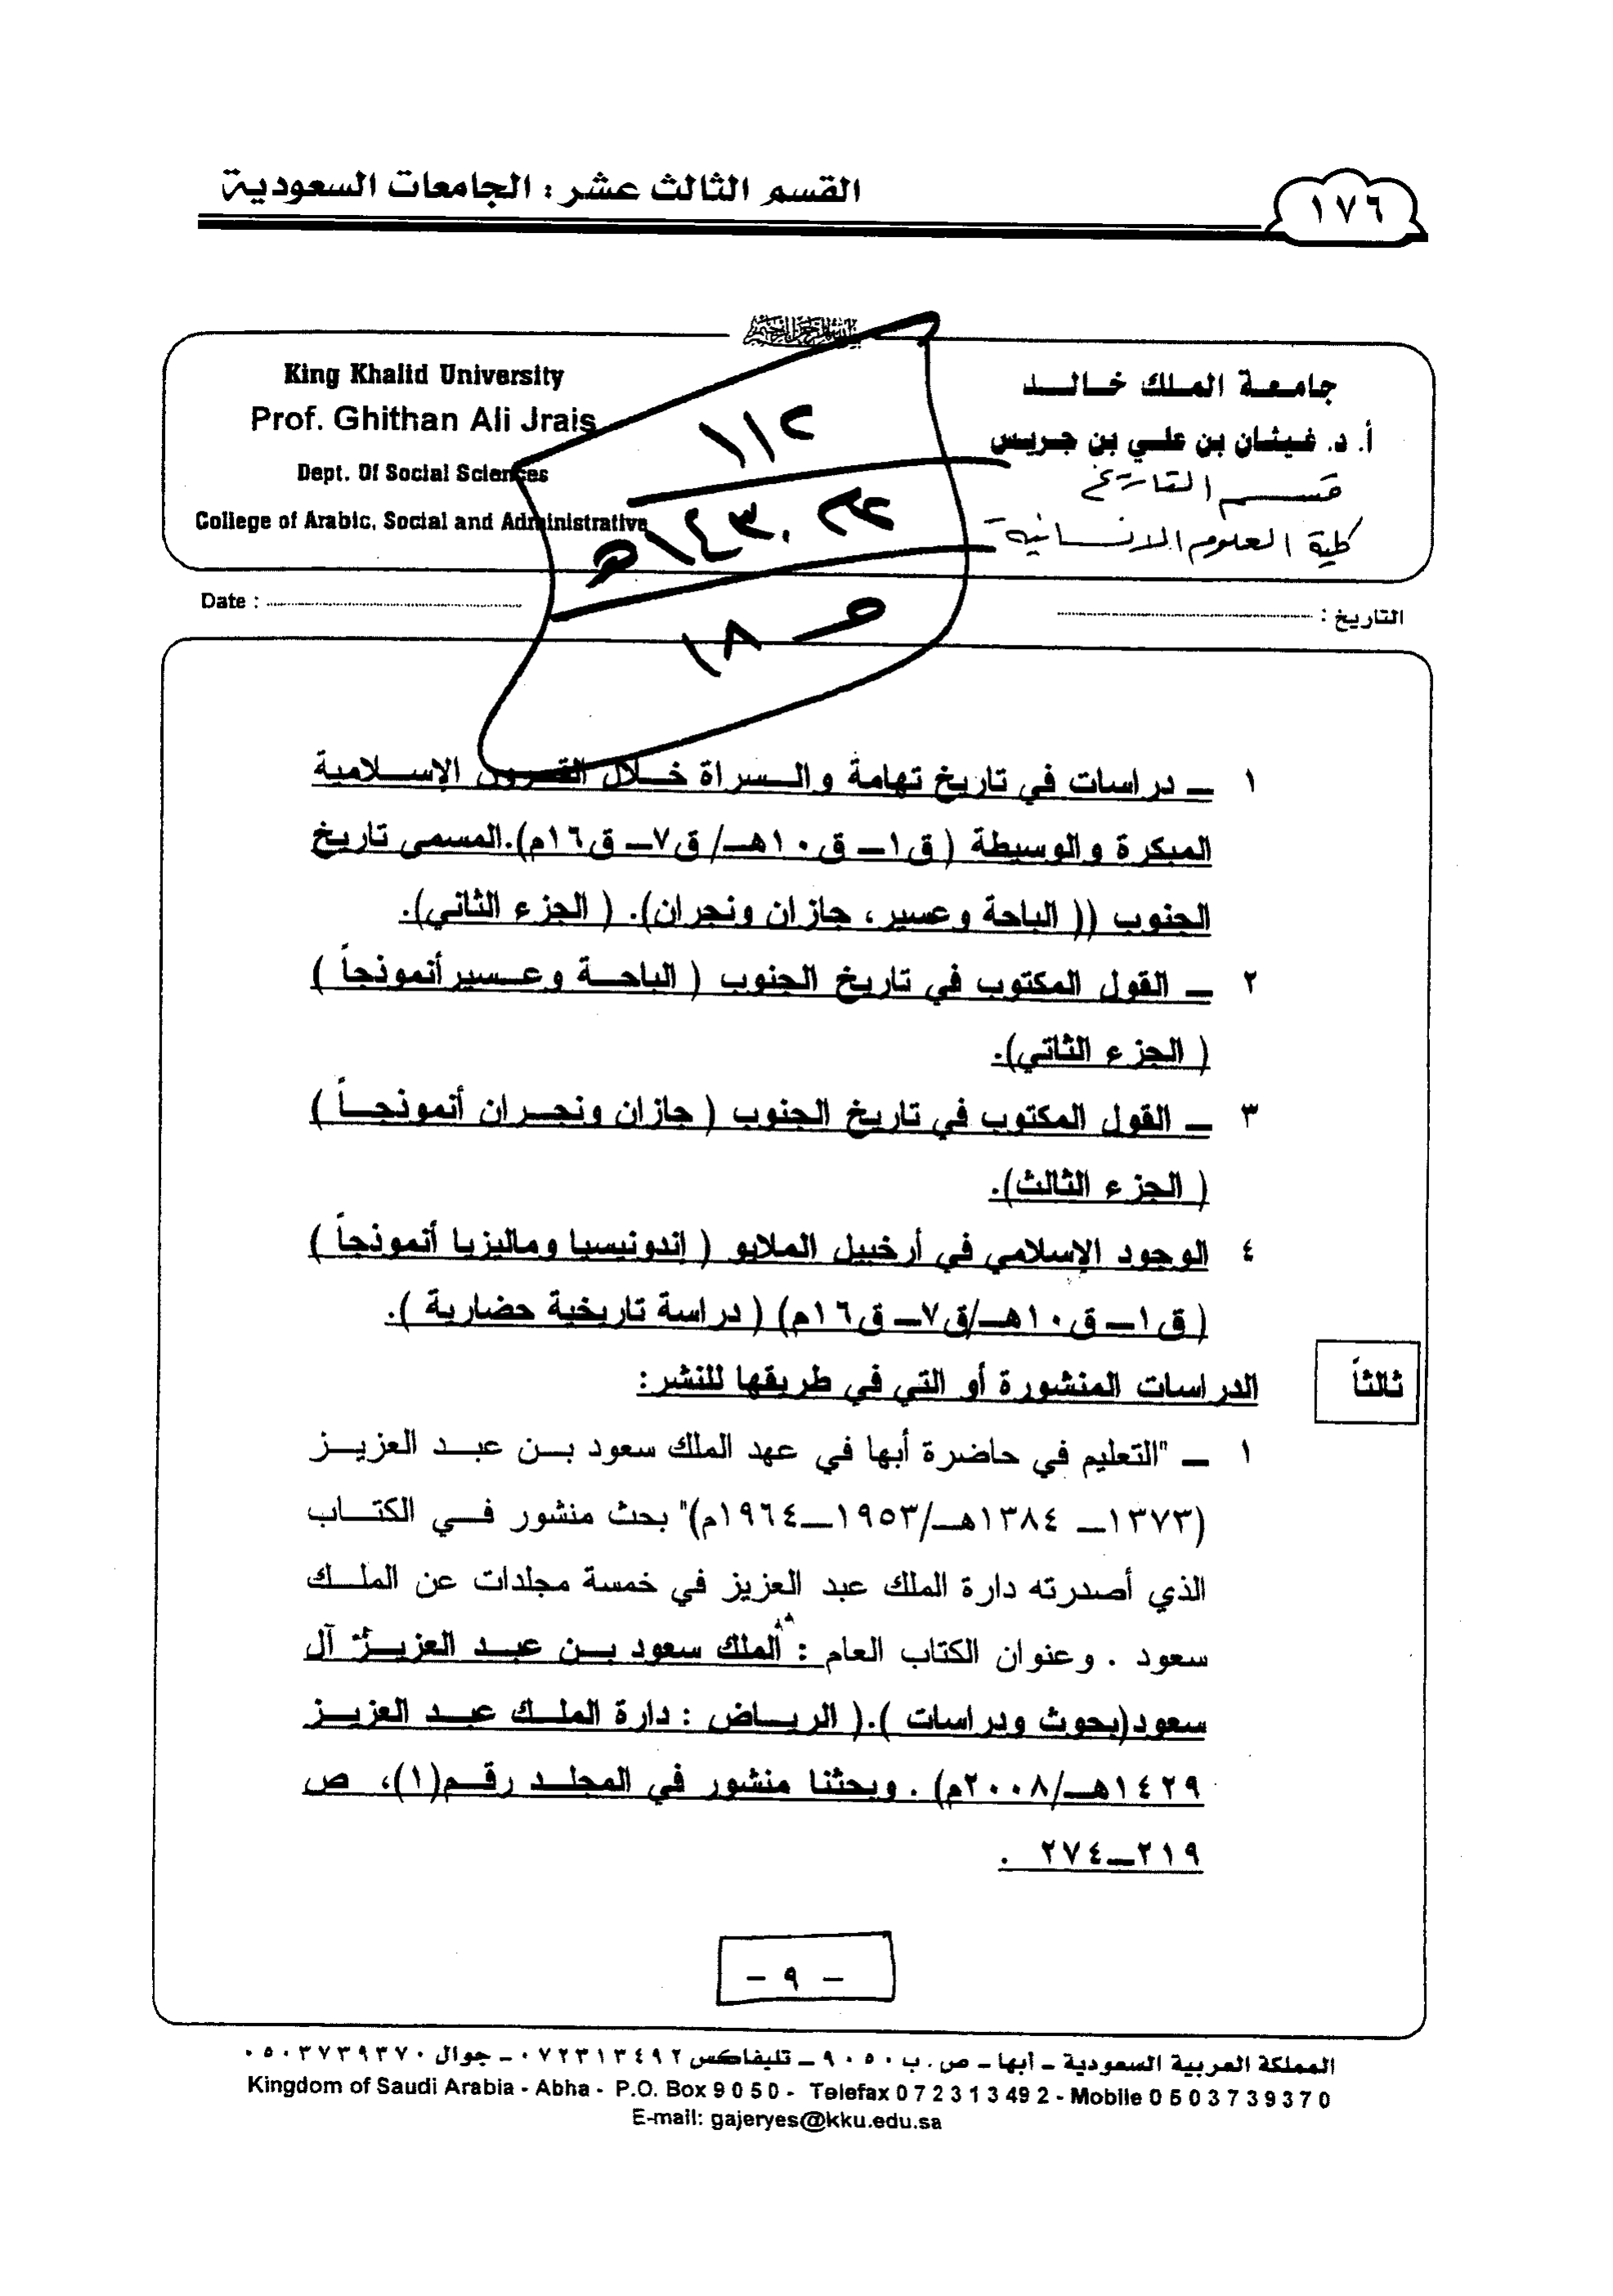 القسم الثالث عشر : الجامعات السعودية
١٧٦
بسم الله الرحمن الرحيم
King Khalid University
Prof. Ghithan Ali Jrais
Dept. Of Social Sciences
College of Arabic, Social and Administrative
جامعة الملك خالد
أ. د. غيثان بن علي بن جريس
قسم التاريخ
كلية العلوم الانسانية
١١٢
١٤٣٠هـ
١٨
Date :
التاريخ :
١ – دراسات في تاريخ تهامة والسراة خلال القرون الإسلامية
المبكرة والوسيطة ( ق١– ق١٠هـ/ ق٧– ق١٦م).المسمى تاريخ
الجنوب (( الباحة وعسير، جازان ونجران). ( الجزء الثاني).
٢ – القول المكتوب في تاريخ الجنوب ( الباحة وعسير أنموذجاً )
( الجزء الثاني).
٣ – القول المكتوب في تاريخ الجنوب ( جازان ونجران أنموذجاً )
( الجزء الثالث).
٤ الوجود الإسلامي في أرخبيل الملايو ( إندونيسيا وماليزيا أنموذجاً )
( ق١– ق١٠هـ/ق٧– ق١٦م) ( دراسة تاريخية حضارية ).
ثالثاً الدراسات المنشورة أو التي في طريقها للنشر:
١ – "التعليم في حاضرة أبها في عهد الملك سعود بن عبد العزيز
(١٣٧٣– ١٣٨٤هـ/١٩٥٣–١٩٦٤م)" بحث منشور في الكتاب
الذي أصدرته دارة الملك عبد العزيز في خمسة مجلدات عن الملك
سعود . وعنوان الكتاب العام : الملك سعود بن عبد العزيز آل
سعود(بحوث ودراسات ).( الرياض : دارة الملك عبد العزيز
١٤٢٩هـ/٢٠٠٨م) . وبحثنا منشور في المجلد رقم(١)، ص
٢١٩–٢٧٤ .
– ٩ –
المملكة العربية السعودية – أبها – ص.ب ٩٠٥٠ – تليفاكس ٠٧٢٣١٣٤٩٢ – جوال ٠٥٠٣٧٣٩٣٧٠
Kingdom of Saudi Arabia - Abha - P.O. Box 9 0 5 0 - Telefax 0 7 2 3 1 3 49 2 - Mobile 0 5 0 3 7 3 9 3 7 0
E-mail: gajeryes@kku.edu.sa